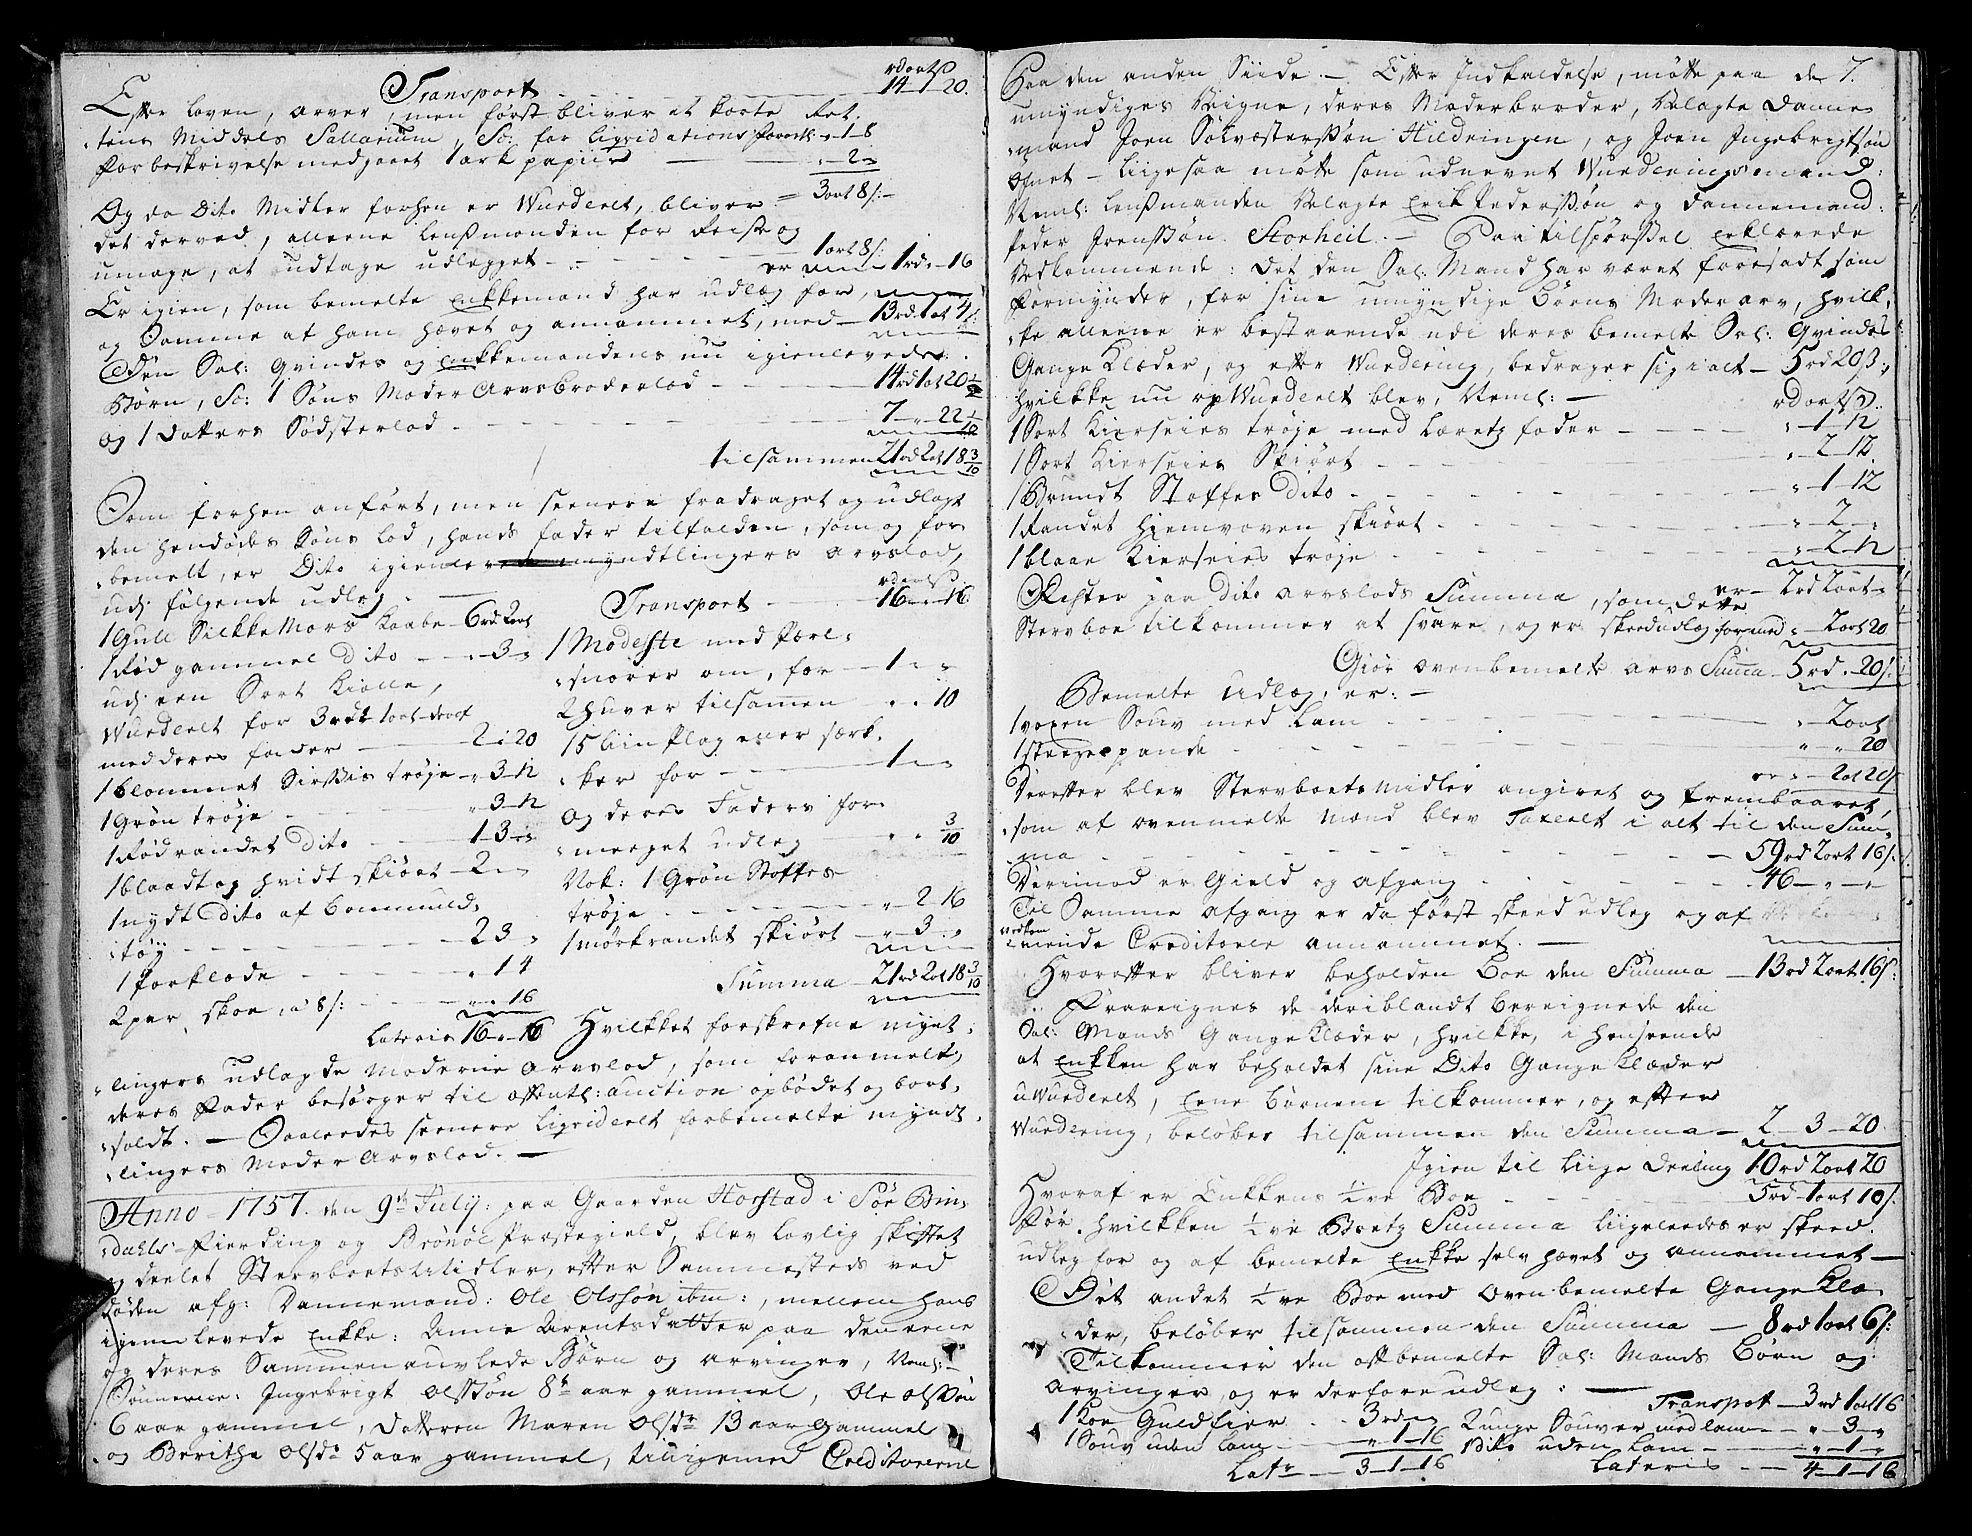 rd ort s
Transport - - - 14 1 20.
Efter loven, arver, men først bliver at korte Ret,
tens Middels Sallarium, So: for liqvidations forretn: - 1 - 8
For beskrivelse medgaaet 1 ark papiir - - 2 -
= 3 ort 8 s: -
Og da Dito Midler forhen er Wurderet, bliver
det derved, alleene lensmanden for Reise og
umage, at udtage udlegget - - - 1 ort 8 s:
er 1 rd - 16
Er igien, som bemelte Enkkemand har udlæg for,
og Somme at ham hævet og annammet, med - 13 rd 1 ort 4 s:
Den Sal: Qvindes og Enkkemandens nu igienlevede
Børn, So: 1 Søns Moder Arvs broderlod - - 14 rd 1 ort 20 1/2
og 1 Datters Sødsterlod - - - 7 - 22 1/10
tilsammen 21 rd 2 ort 18 3/10
Som forhen anført, men seenere fradraget og udlagt
den hendødes Søns lod, hands fader tilfalden, som og for,
bemelt, er Dito igienlevede myndtlingers arvslod,
udj følgende udleg -
1 Guul Silkke Mors Kaabe - 6 rd 2 ort
1 Rød gammel Dito - - 3 -
udj een Sort Kiolle,
Wurderet for 3 rdr 1 ort - deraf
med deres fader - - 2 1 20
1 blommet Sirsses trøje - 3 - 12
1 Grøn trøje - - 3 - 12
1 Rødrandet Dito - - 1 - 3 -
1 blaadt og hvidt skiørt - 2 -
1 nydt Dito af bommuld,
tøy - - - 2 3 -
1 forklæde - - - 1 4
2 par skoe, a 8 s: - - 16
Lateris 16 - 16
rd ort s
Transport - - 16 - 16
1 Modeste med Perl,
snorer om, for - 1 - -
2 huver tilsamen - - 10
15 liin plag ever særk,
ker for - - 1 - -
og deres Faders for,
meeget udleg - - 3/10
Nok: 1 Grøn Stoffes
trøje - - - 2 16
1 mørkrandet skiørt - 3 -
Summa - 21 rd 2 ort 18 3/10
Hvilkket forskrefne mynt,
lingers udlagde Moderne Arvslod, som foranmelt,
deres Fader besørger til offentl: auction opbødet og bort,
soldt. - Saaledes seenere liqvideret forbemelte myndt,
lingers Moder Arvslod. -
Anno - 1757. den 9de July: paa Gaarden Horstad i Sør Bin,
dahls - Fierding og Brønøe Prestegield, blev lovlig skiftet
og deelet Stervboets Midler, efter Sammesteds ved
døden afg: Dannemand: Ole Olssøn ibm:, mellem hans
igienlevede Enkke: Anne Arentsdatter paa den eene
og deres Sammenauvlede Børn og arvinger, Neml:
Sønnerne: Ingebrigt Olssøn 8te aar gammel, Ole Olssøn
6 aar gammel, Datteren Maren Olsdr 13 aar Gammel
og Berithe Olsdr 5 aar gammel, tilligemed Creditorerne
Paa den anden Siide. - Efter Indkaldelse, møtte paa de 7.
umyndiges Veigne, deres Moderbroder, Velagte Danne,
mand Joen Sølvesterssøn Hildringen, og Joen Ingebrigtsøn
Ofnet - liigesaa møtte som udnævnt Wurderingsmænd:
Neml: lensmanden Velagte Erik Pederssøn og Dannemand:
Peder Joenssøn Storheil. - Paa tilspørssel erklærede
Vedkommende: det den Sal: Mand har været foresadt som
Formynder, for sine umyndige børns Moder arv, hvilk,
ke alleene er bestaaende udi deres bemelte Sal: Qvindes
Gange Klæder, og efter Wurdering, bedrager sig i alt - 5 rd 20 s:
hvilkke nu op Wurderet blev, Neml: -
rd ort s
1 Sort Kierseies trøje med læretz foder - - 1 - 12
1 Sort Kierseies Skiørt - - 2 12.
1 Brundt Stoffes Dito - - 1 - 12
1 Randet hiemvoven skiørt - - 2 -
1 blaae Kierseies trøje - - 2 - 12
er - 2 rd 2 ort -
Rester paa Dito arvslods Summa, som dette
Stervboe tilkommer at svare, og er skeed udlæg for med - 2 ort 20
Giør ovenbemelte arvs Suma - 5 rd - 20 s:
Bemelte Udlæg, er: -
1 voxen Souv med lam - - 2 ort
1 steegepande - - - 20
er - 2 ort 20 s
Derefter blev Stervboets Midler angivet og frembaaret,
som af ovenmelte Mænd blev Taxeret i alt til den Sum,
ma - - - 59 rd 2 ort 16 s:
Derimod er Gield og afgang - - 46 - - -
Til Samme afgang er da først skeed udleg og af
vedkom
mende Creditorer annammet. -
Hvorefter bliver beholden boe den Summa - 13 rd 2 ort 16 s:
Frareignes de deriblandt bereignede den
Sal: Mands Gangeklæder, hvilkke, i henseende
at Enkken har beholdet sine Dito Gange klæder
u Wurderet, Eene børnene tilkommer, og efter
Wurdering, beløber tilsammen den Summa - 2 - 3 - 20
Igien til liige deeling 10 rd 2 ort 20
Hvoraf er Enkkens 1/2 ve Boe - - 5 rd - 1 ort 10 s:
Før, hvilkken 1/2 ve Boetz Summa liigeleedes er skeed
udleg for og af bemelte Enkke selv hævet og annammet -
Det andet 1/2 ve Boe med ovenbemelte Gange Klæ,
der, beløber tilsammen den Summa - 8 rd 1 ort 6 s:
Tilkommer den oftbemelte Sal: Mands børn og
arvinger, og er derfore udleg: -
1 Koe Guldfier - 3 rd -
1 Souv uden lam - - 1 - 16
Latr - 3 - 1 - 16
Transpot - 3 rd 1 ort 16
2 unge Souver med lam - - 3 -
1 Dito uden lam - - 1 -
Lateris - - 4 - 1 - 16